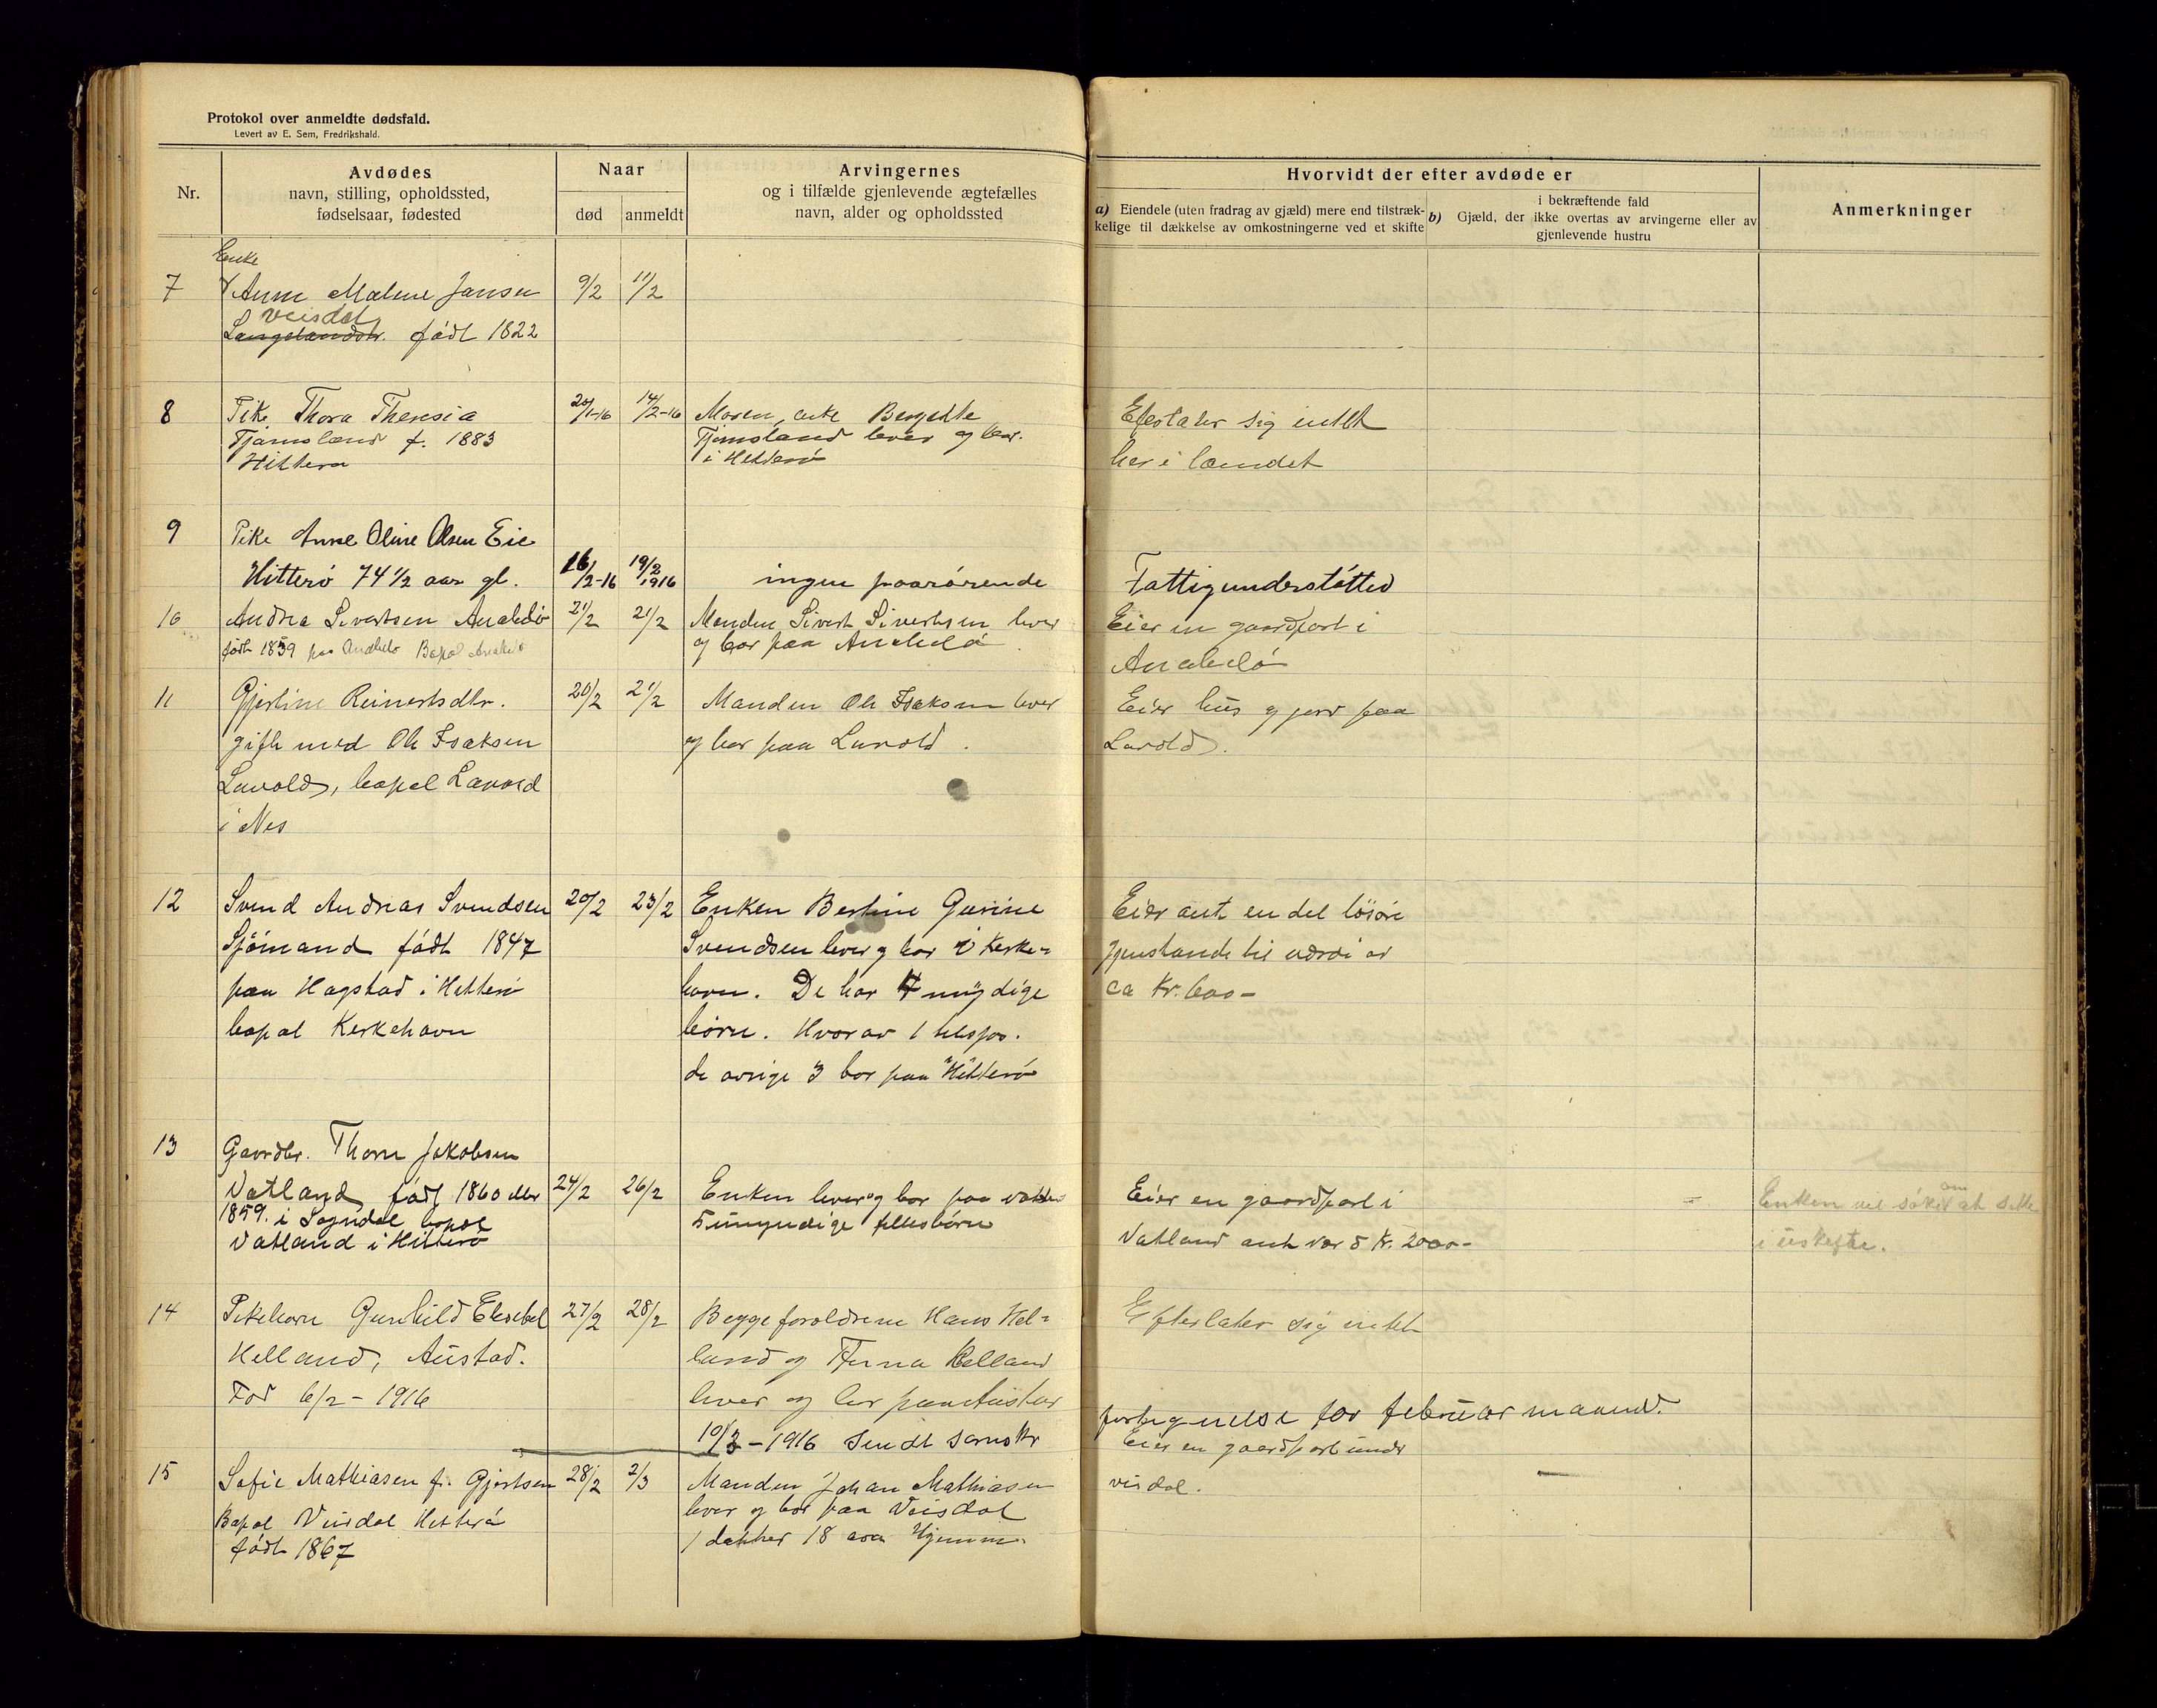 Protokol over anmeldte dødsfald.
Levert av E. Sem, Fredrikshald.
Nr.
Avdødes
navn, stilling, opholdssted,
fødselsaar, fødested
Naar
død
anmeldt
Arvingernes
og i tilfælde gjenlevende ægtefælles
navn, alder og opholdssted
Hvorvidt der efter avdøde er
a) Eiendele (uten fradrag av gjæld) mere end tilstræk-
kelige til dækkelse av omkostningerne ved et skifte
i bekræftende fald
b) Gjæld, der ikke overtas av arvingerne eller av
gjenlevende hustru
Anmerkninger
Enke
7 Anne Malene Jansen 9/2 11/2
Veisdal
Langelandstr. født 1822
8 Pike Thora Theresia 20/1-16 14/2-16 Moren, enke Bergitte
Tjømsland f. 1883 Tjømsland lever og bor
Hitterø i Hitterø
Efterlater sig intet
her i landet
9 Pike Anne Oline Olsen Eie
Hitterø 74 1/2 aar gl. 16/2-16 19/2 1916 ingen paarørende
Fattigunderstøtted
10 Andrea Sivertsen Anabelø 21/2 21/2 Manden Sivert Sivertsen lever
født 1839 paa Anabelø Bopæl Anabelø og bor paa Anabelø
Eier en gaardpart i
Anabelø
11 Gjertine Reinertsdtr. 20/2 21/2 Manden Ole Isaksen lever
gift med Ole Isaksen og bor paa Lavold.
Lavold, bopæl Lavold
i Nes
Eier hus og jord paa
Lavold.
12 Svend Andreas Svendsen 20/2 23/2 Enken Bertine Gurine
Sjømand født 1847 Svendsen lever og bor i Kirke-
paa Hagstad i Hitterø havn. De har 4 myndige
bopæl Kirkehavn børn. Hvorav 1
de øvrige 3 bor paa Hitterø
Eier ant en del løsøre
gjenstande til værdi av
ca Kr. 600-
13 Gaardbr. Thore Jakobsen
Vatland født 1860 eller 24/2 26/2 Enken lever og bor paa Vatland
1859. i Sogndal bopæl 5 umyndige fellesbørn
Vatland i Hitterø
Eier en gaardpart i
Vatland ant verd Kr. 2000-
Enken vil søke om at sitte
i uskifte.
14 Pikebarn Gunhild Elisebet 27/2 28/2 Begge foroldrene Hans Hel-
Helland, Austad. land og Helland
Fød 6/2 - 1916 lever og bor paa Austad
Efterlater sig intet
10/3 - 1916 Sendt sorenskr fortegnelse for februar maaned.
15 Sofie Mathiasen f. Gjertsen 28/2 2/3 Manden Johan Mathiasen
Bopæl Veisdal Hitterø lever og bor paa Veisdal
født 1867 1 datter 18 aar Hjemme
Eier en gaardpart under
Veisdal.